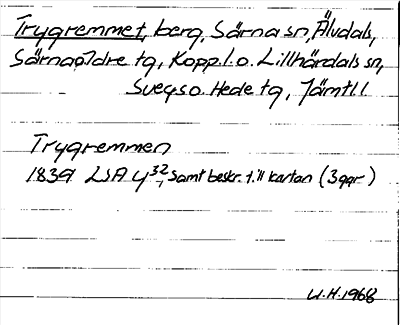 Trygremmet, berg, Särna sn, Älvdals,
Särna o Idre tg, Kopp.l. o. Lillhärdals sn,
Svegs o. Hede tg, Jämtl.l
Trygremmen
1839 LSA Y 32/1 samt beskr. till kartan (3 ggr)
U.H. 1968